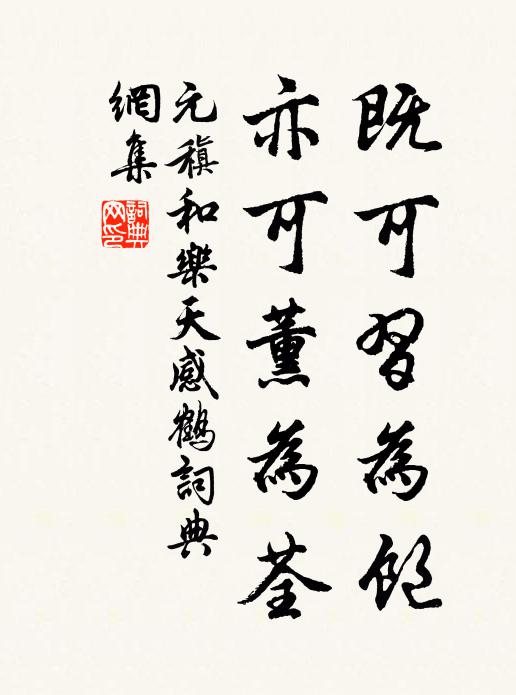 既可習為飽
亦可薰為荃
元稹和樂天感鶴詞典
網集
詞典
网印